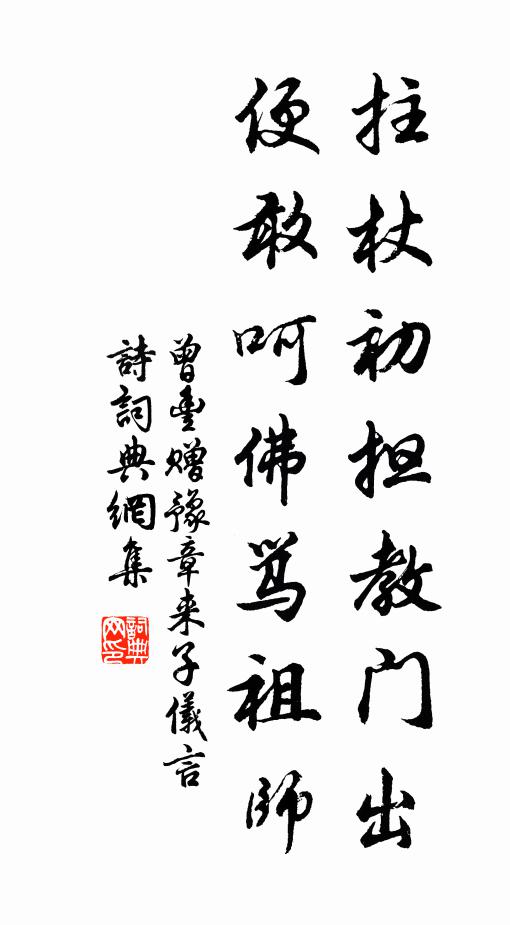 拄杖初担教门出
便敢呵佛骂祖师
曾豊赠豫章来子儀言
詩詞典網集
詞典网印